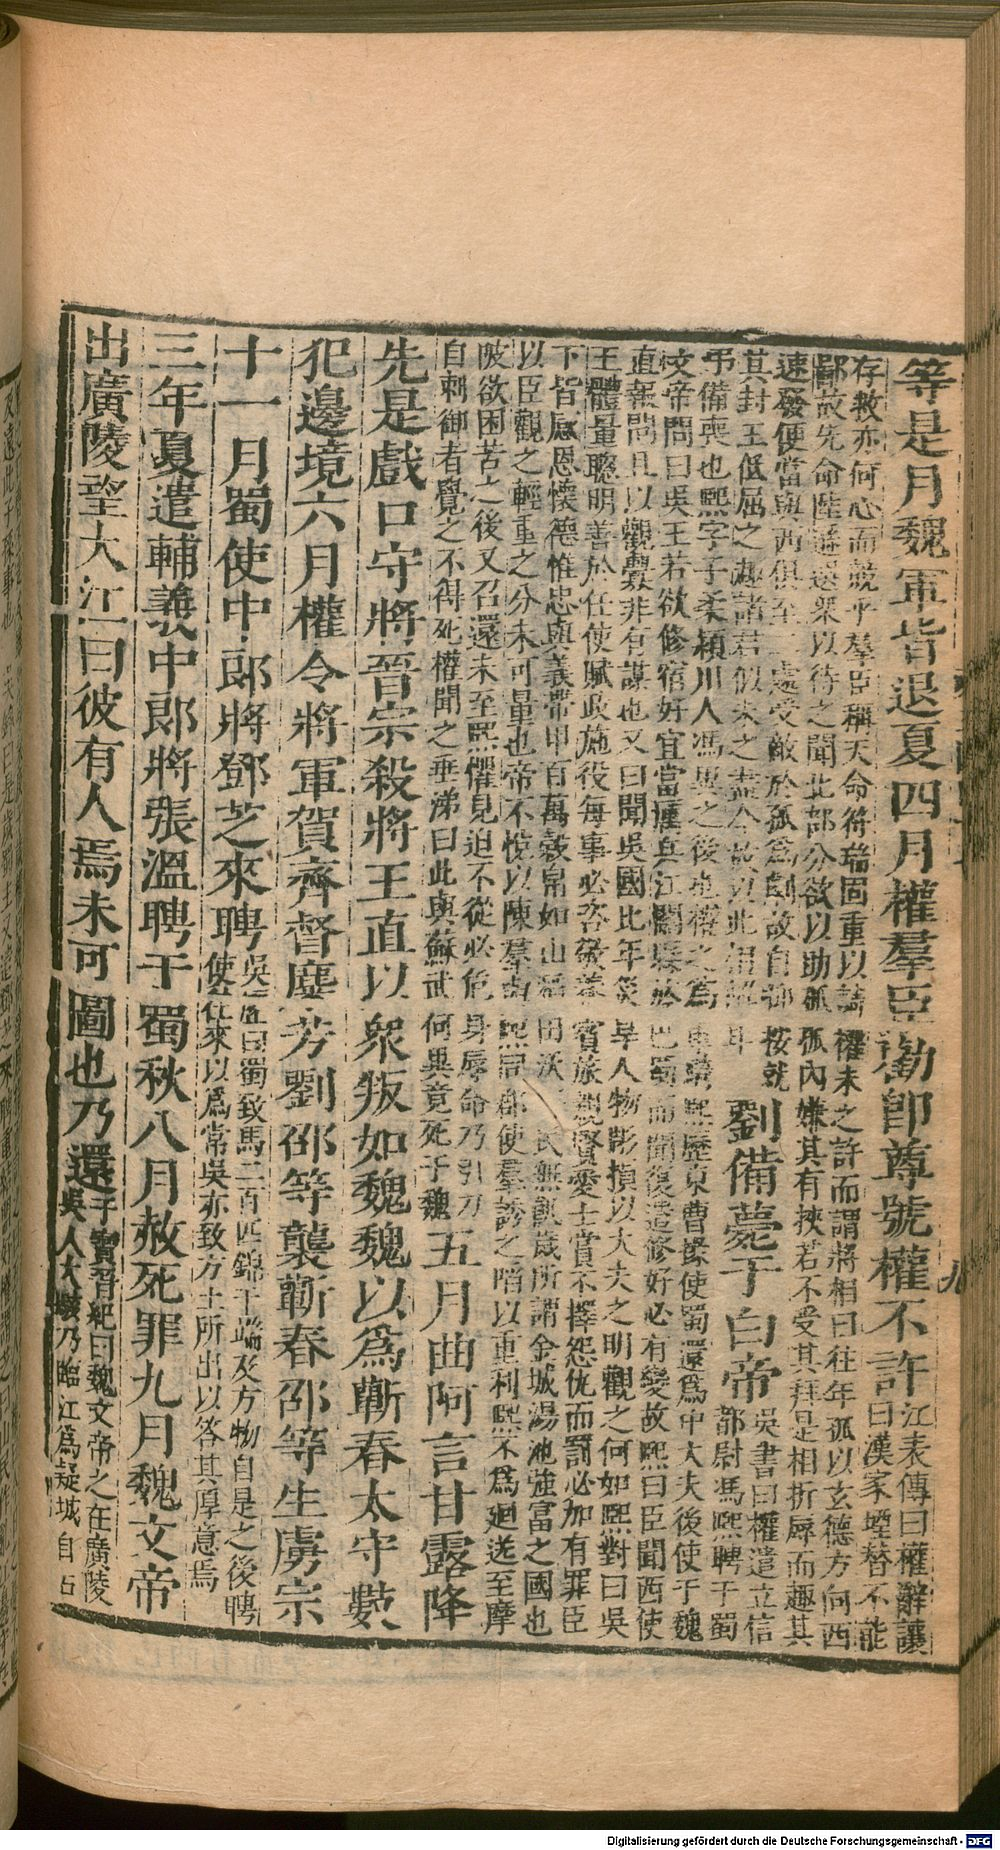 等是月魏軍皆退夏四月權羣臣勸卽尊號權不許
江表傳曰權辭讓
曰漢家堙替不能
存救亦何心而競乎羣臣稱天命符瑞固重以請權未之許而謂將相曰往年孤以玄德方向西
鄙故先命陸遜選衆以待之聞北部分欲以助孤孤內嫌其有挾若不受其拜是相折辱而趣其
速發便當與西俱至二處受敵於孤爲劇故自抑按就
其封王低屈之趣諸君似未之盡今故以此相解耳
劉備薨于白帝
吳書曰權遣立信
都尉馮熙聘于蜀
弔備喪也熙字子柔潁川人馮異之後也權之爲車騎熙歷東曹掾使蜀還爲中大夫後使于魏
文帝問曰吳王若欲修宿好宜當厲兵江關縣旍巴蜀而聞復遣修好必有變故熙曰臣聞西使
直報問且以觀釁非有謀也又曰聞吳國比年災旱人物彫損以大夫之明觀之何如熙對曰吳
王體量聰明善於任使賦政施役每事必咨敎養賓旅親賢愛士賞不擇怨仇而罰必加有罪臣
下皆感恩懷德惟忠與義帶甲百萬穀帛如山稻田沃野民無饑歲所謂金城湯池強富之國也
以臣觀之輕重之分未可量也帝不悅以陳羣與熙同郡使羣誘之啗以重利熙不爲廻送至摩
陂欲困苦之後又召還未至熙懼見迫不從必危身辱命乃引刀
自刺御者覺之不得死權聞之垂涕曰此與蘇武何異竟死于魏
五月曲阿言甘露降
先是戲口守將晉宗殺將王直以衆叛如魏魏以爲蘄春太守數
犯邊境六月權令將軍賀齊督麋芳劉邵等襲蘄春邵等生虜宗
十一月蜀使中郞將鄧芝來聘
吳歷曰蜀致馬二百匹錦千端及方物自是之後聘
使往來以爲常吳亦致方土所出以答其厚意焉
三年夏遣輔義中郞將張溫聘于蜀秋八月赦死罪九月魏文帝
出廣陵望大江曰彼有人焉未可圖也乃還
干寶晉紀曰魏文帝之在廣陵
吳人大駭乃臨江爲疑城自石
Digitalisierung gefördert durch die Deutsche Forschungsgemeinschaft - DFG